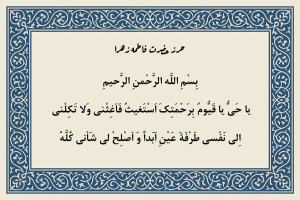 حرز حضرت فاطمه زهرا
بِسْمِ اللَّهِ الرَّحْمنِ الرَّحیمِ
یا حَیُّ یا قَیُّومُ بِرَحْمَتِکَ اَسْتَغیثُ فَاَغِثْنی وَلا تَکِلْنی
اِلی نَفْسی طَرْفَةَ عَیْنٍ اَبَداً وَ اَصْلِحْ لی شَاْنی کُلَّهُ